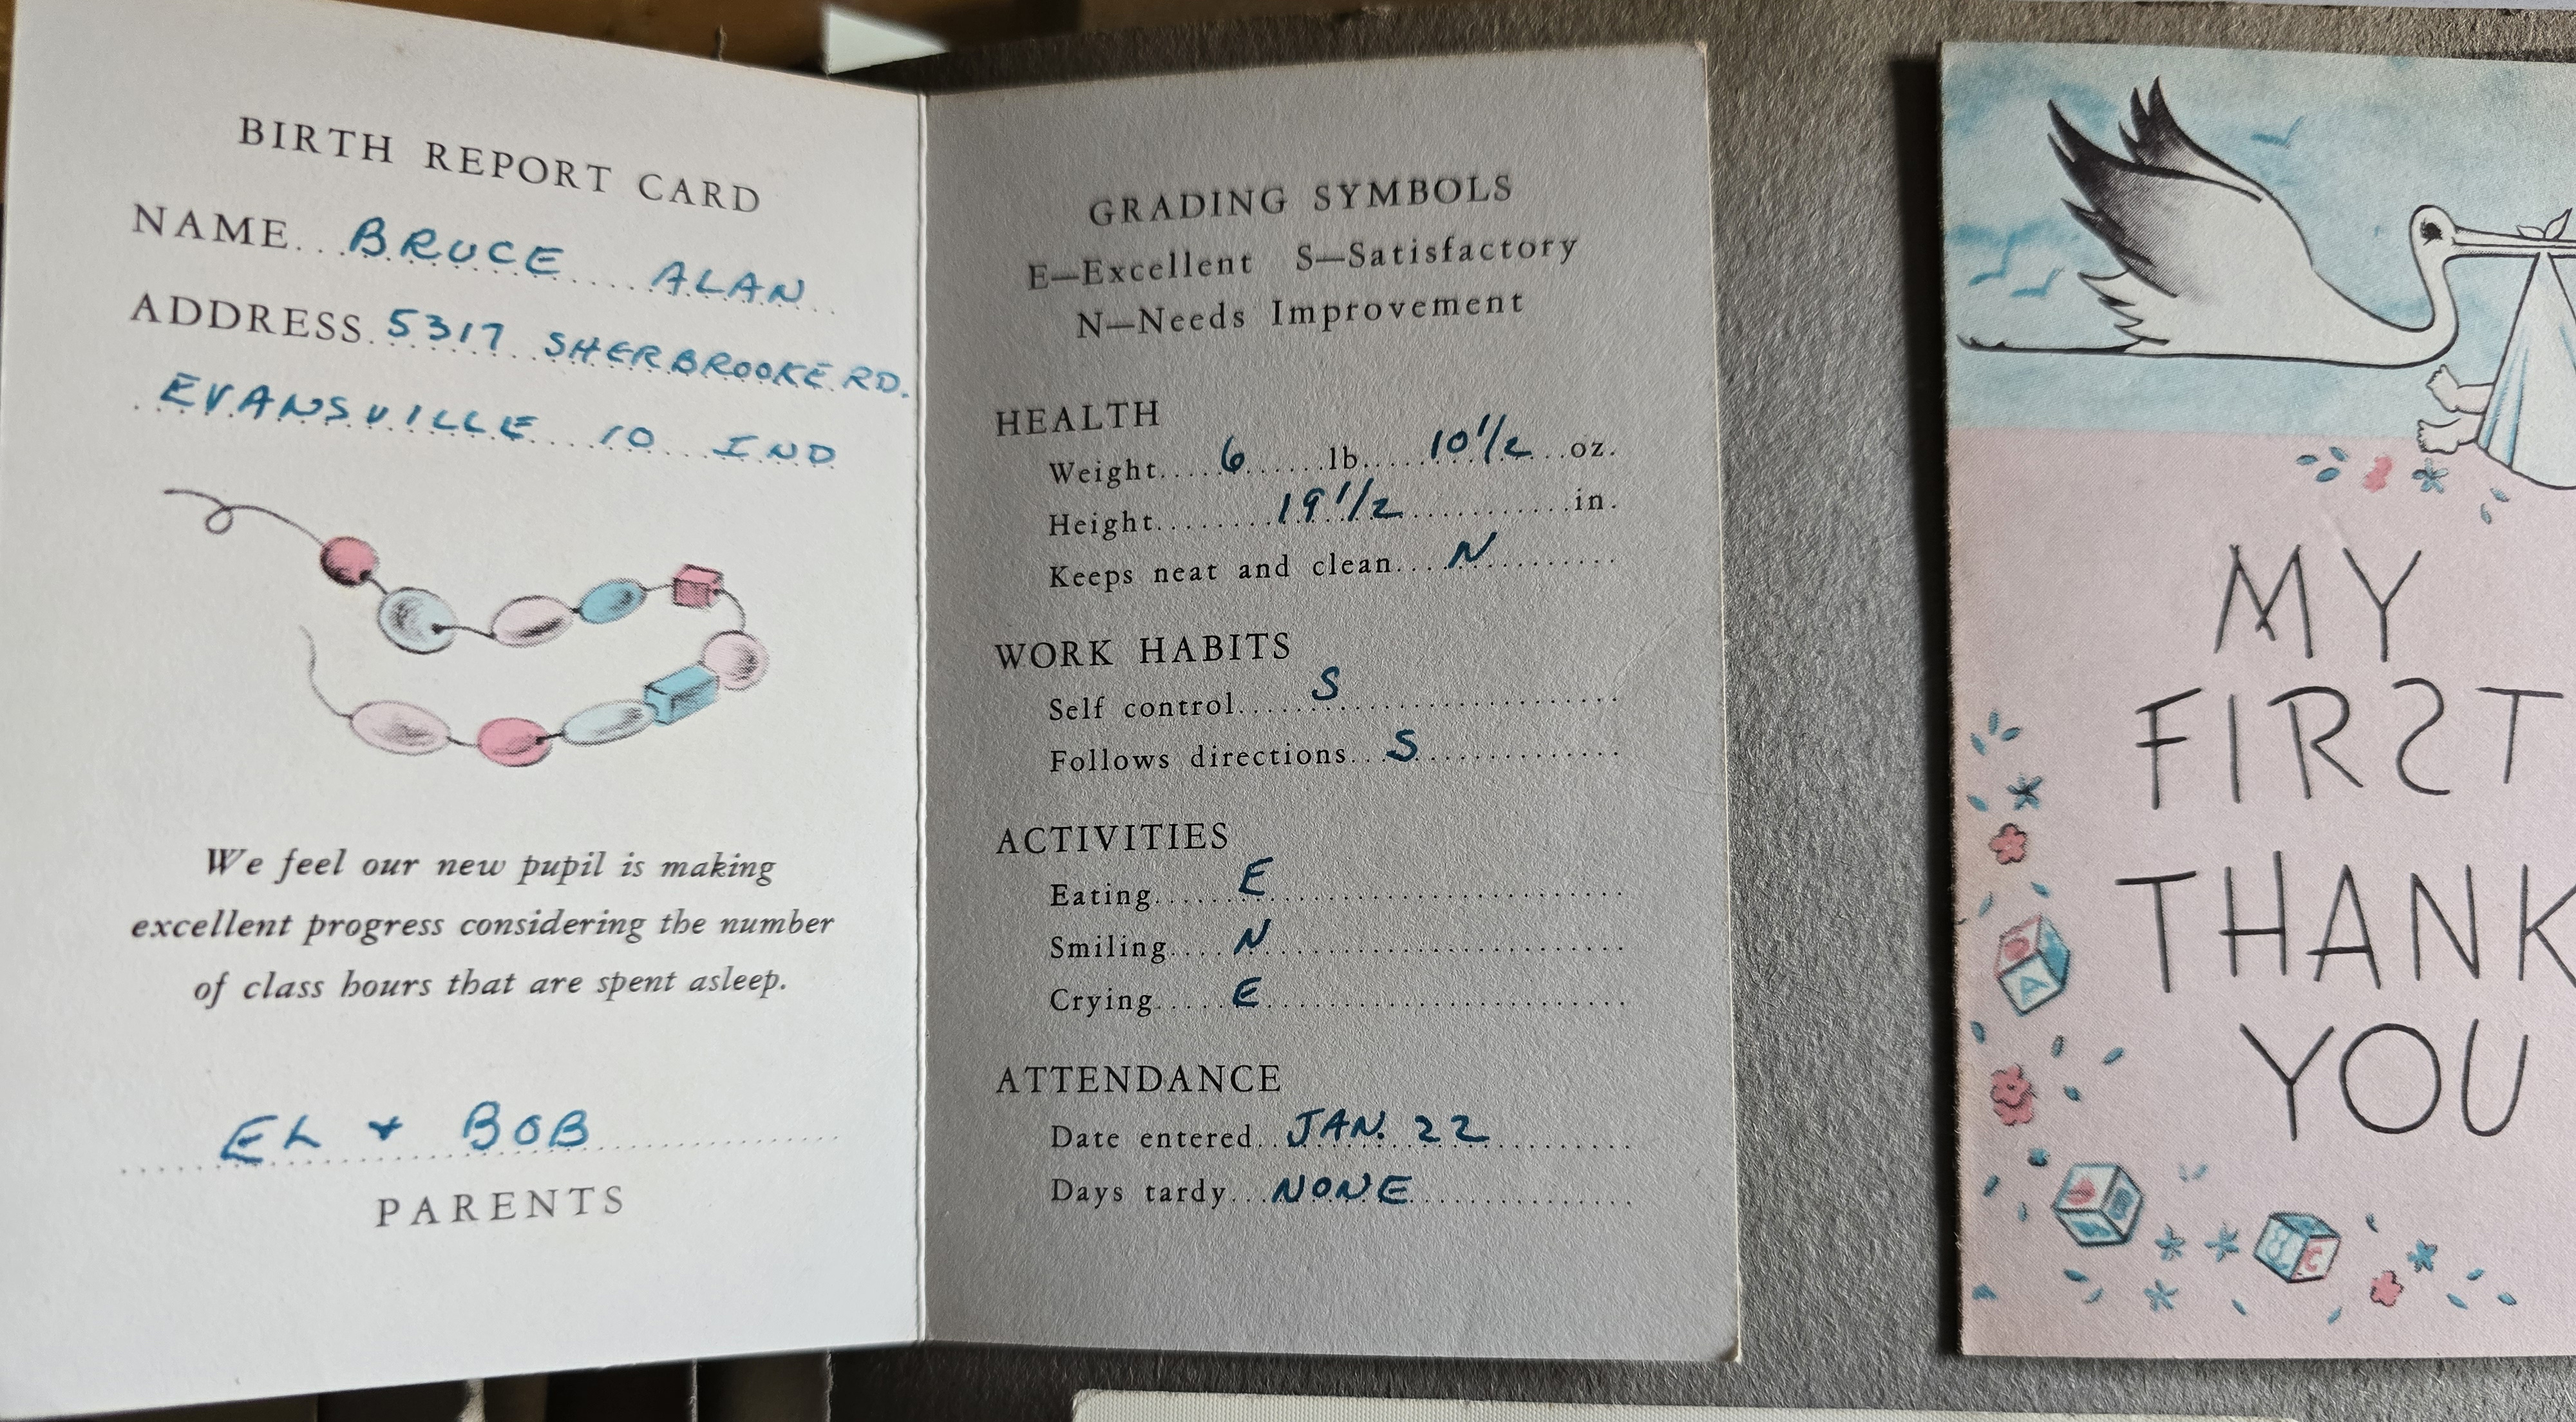 BIRTH REPORT CARD
NAME... BRUCE ALAN
ADDRESS. 5317 SHERBROOKE RD.
EVANSVILLE 10 IND
We feel our new pupil is making
excellent progress considering the number
of class hours that are spent asleep.
EL + BOB
PARENTS
GRADING SYMBOLS
E—Excellent S—Satisfactory
N—Needs Improvement
HEALTH
Weight.... 6 ......lb..... 10 1/2 ...oz.
Height........ 19 1/2 ............in.
Keeps neat and clean.... N .........
WORK HABITS
Self control..... S ....................
Follows directions... S ..............
ACTIVITIES
Eating...... E ........................
Smiling.... N ........................
Crying..... E ........................
ATTENDANCE
Date entered.. JAN. 22 ..........
Days tardy... NONE ..............
MY
FIRST
THANK
YOU